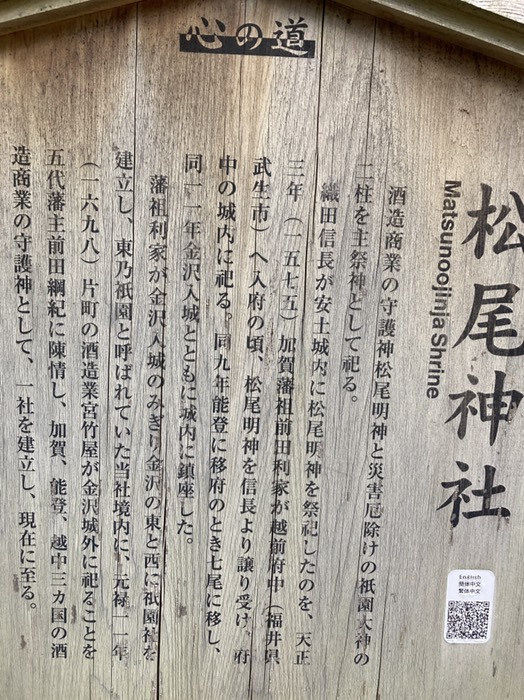 心の道
松尾神社
Matsunoojinja Shrine
酒造商業の守護神松尾明神と災害厄除けの祇園大神の
二柱を主祭神として祀る。
織田信長が安土城内に松尾明神を祭祀したのを、天正
三年（一五七五）加賀藩祖前田利家が越前府中（福井県
武生市）へ入府の頃、松尾明神を信長より譲り受け、府
中の城内に祀る。同九年能登に移府のとき七尾に移し、
同一一年金沢入城とともに城内に鎮座した。
藩祖利家が金沢入城のみぎり金沢の東と西に祇園社を
建立し、東乃祇園と呼ばれていた当社境内に、元禄一一年
（一六九八）片町の酒造業宮竹屋が金沢城外に祀ることを
五代藩主前田綱紀に陳情し、加賀、能登、越中三カ国の酒
造商業の守護神として、一社を建立し、現在に至る。
English
簡体中文
繁体中文